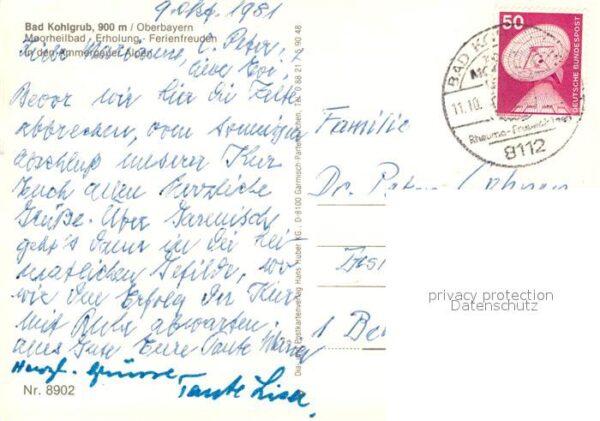 9. Okt. 1981
Bad Kohlgrub, 900 m / Oberbayern
Moorheilbad - Erholung - Ferienfreuden
in den Ammergauer Alpen
Peter,
liebe
Bevor wir hier die Zelte
abbrechen, vom sonnigen
Abschluß unserer Kur
Euch allen herzliche
Grüße. Über Garmisch
geht's dann in die hei-
matlichen Gefilde, wo
wir den Erfolg der Kur
mit Ruhe abwarten.
alles Gute Eure Tante
Herzl. Grüsse
Tante Lisa.
Nr. 8902
Postkartenverlag Hans Huber KG., D-8100 Garmisch-Partenkirchen, Tel. 0 88 21 /
Familie
Dr. Peter
1 Be
50
DEUTSCHE BUNDESPOST
BAD KO
11.10.
8112
privacy protection
Datenschutz